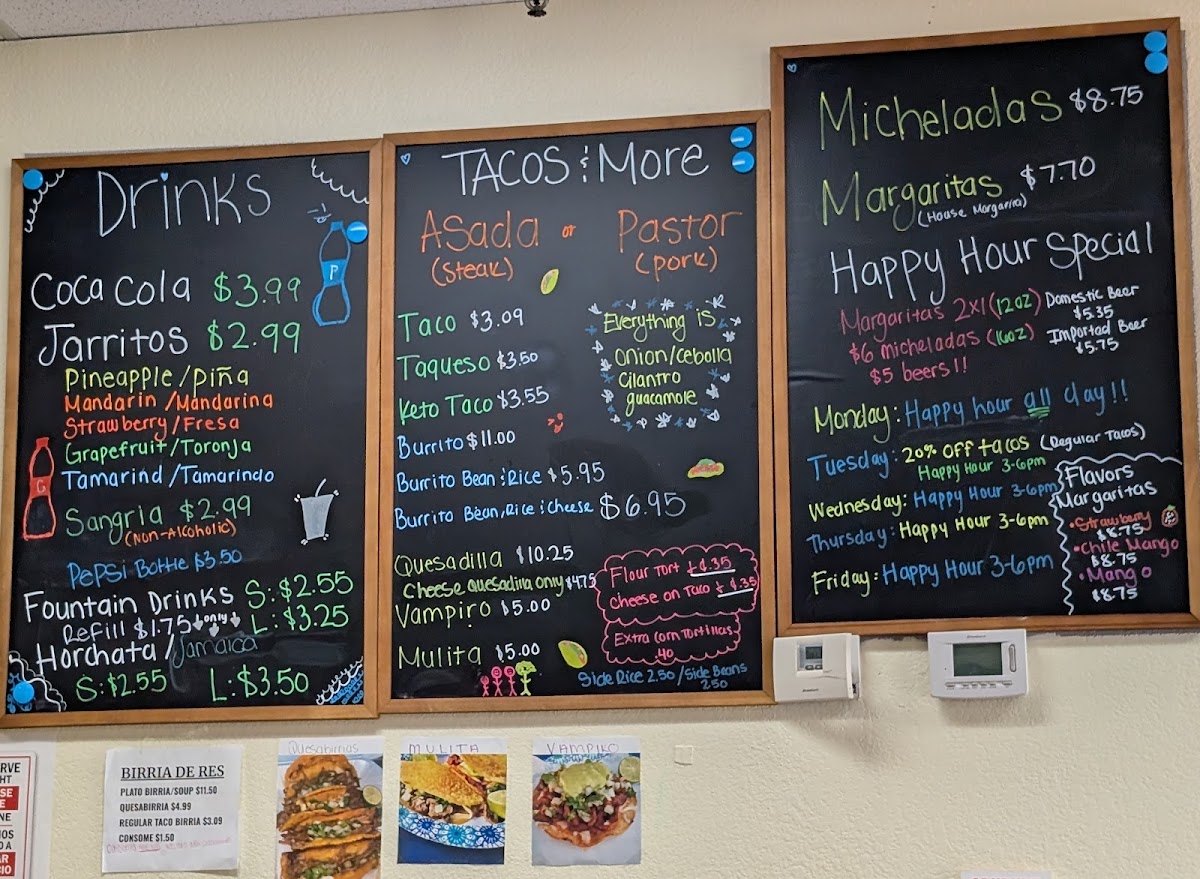 Drinks
P
Coca Cola $3.99
Jarritos $2.99
Pineapple/Piña
Mandarin/Mandarina
Strawberry/Fresa
Grapefruit/Toronja
Tamarind/Tamarindo
Sangria $2.99
(Non-Alcoholic)
Pepsi Bottle $3.50
Fountain Drinks S: $2.55
Refill $1.75 only L: $3.25
Horchata/Jamaica
S: $2.55 L: $3.50
TACOS & More
Asada or Pastor
(Steak) (pork)
Taco $3.09
Taqueso $3.50
Keto Taco $3.55
Burrito $11.00
Burrito Bean & Rice $5.95
Burrito Bean, Rice & Cheese $6.95
Quesadilla $10.25
Cheese quesadilla only $4.75
Vampiro $5.00
Mulita $5.00
Everything is
Onion/cebolla
Cilantro
guacamole
Flour Tort +.35
cheese on Taco +.35
Extra Corn Tortillas
.40
Side Rice 2.50/Side Beans
2.50
Micheladas $8.75
Margaritas $7.70
(House Margarita)
Happy Hour Special
Margaritas 2x1 (12oz)
$6 micheladas (16oz)
$5 beers!!
Domestic Beer
$5.35
Imported Beer
$5.75
Monday: Happy hour all day!!
Tuesday: 20% OFF tacos (Regular Tacos)
Happy Hour 3-6pm
Wednesday: Happy Hour 3-6pm
Thursday: Happy Hour 3-6pm
Friday: Happy Hour 3-6pm
Flavors
Margaritas
•Strawberry
$8.75
•Chile Mango
$8.75
•Mango
$8.75
BIRRIA DE RES
PLATO BIRRIA/SOUP $11.50
QUESABIRRIA $4.99
REGULAR TACO BIRRIA $3.09
CONSOME $1.50
Quesabirrias
MULITA
VAMPIRO